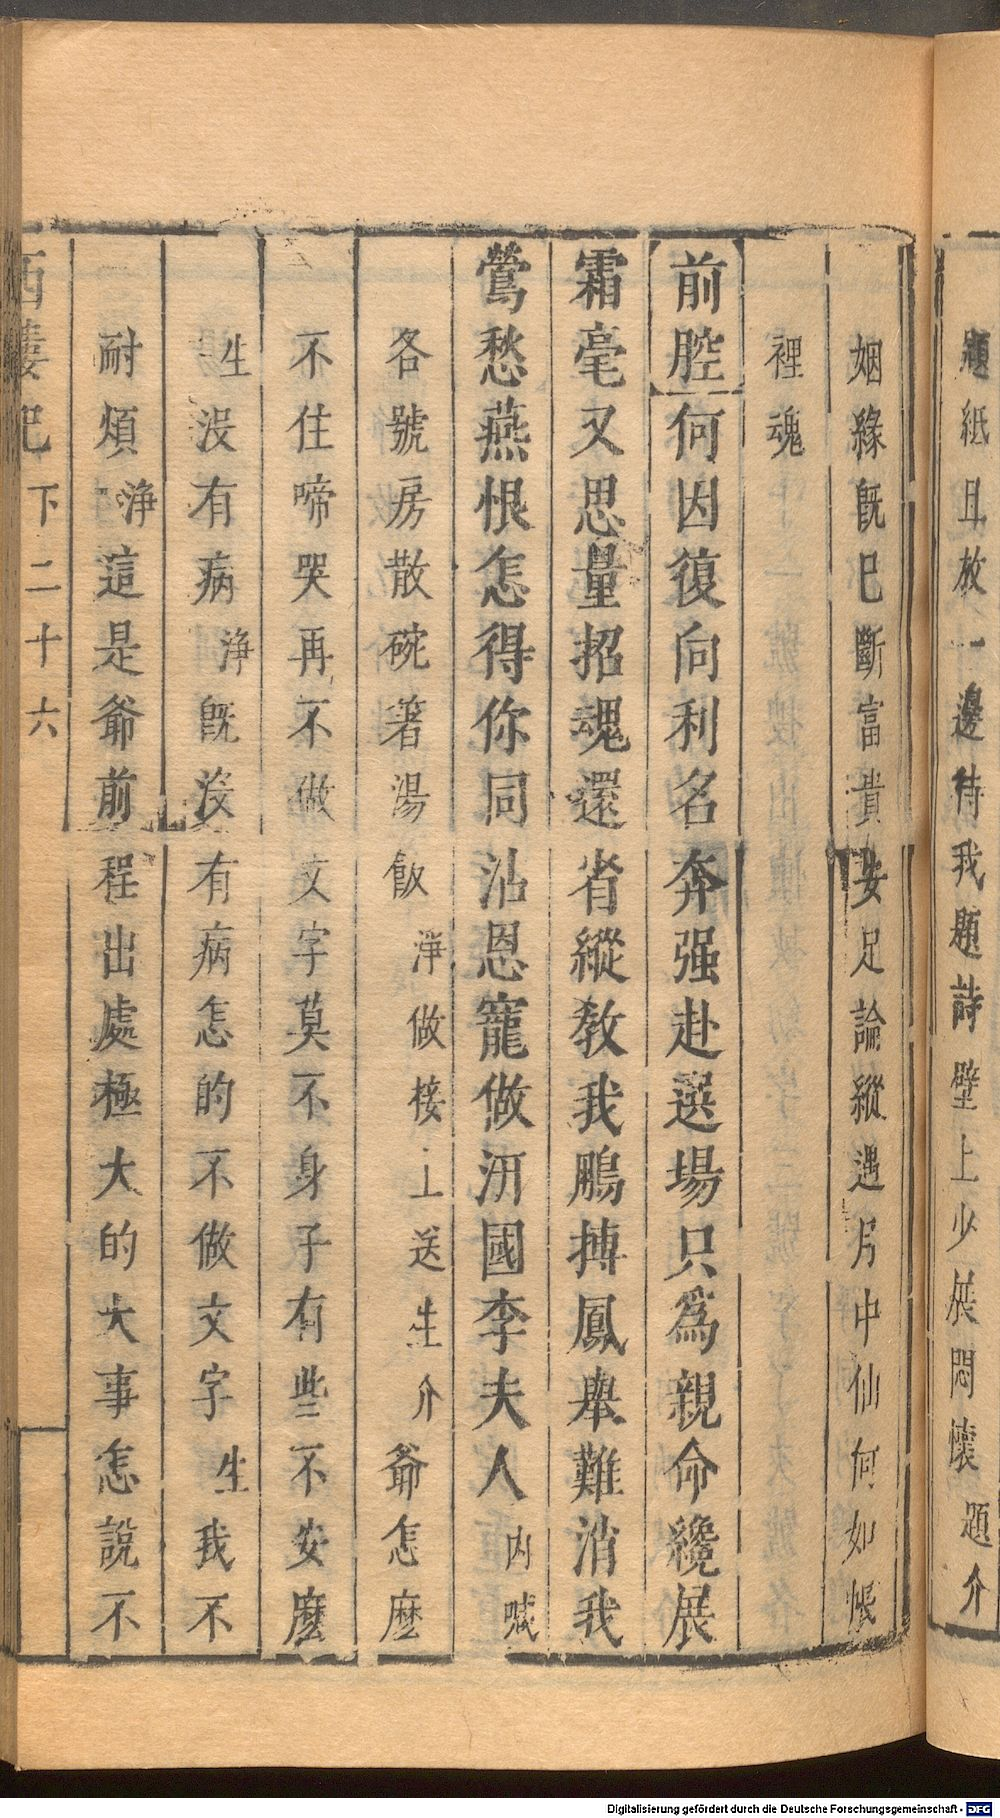 題紙且放一邊待我題詩壁上少展悶懷題介
姻緣旣已斷富貴安足論縱遇月中仙何如帳
裡魂
前腔何因復向利名奔强赴選場只為親命纔展
霜毫又思量招魂還省縱教我鵬摶鳳舉難消我
鶯愁燕恨怎得你同沾恩寵做汧國李夫人內喊
各號房散碗箸湯飯淨做接上送生介爺怎麽
不住啼哭再不做文字莫不身子有些不安麽
生没有病淨旣没有病怎的不做文字生我不
耐煩淨這是爺前程出處極大的大事怎說不
西樓记 下 二十六
Digitalisierung gefördert durch die Deutsche Forschungsgemeinschaft - DFG